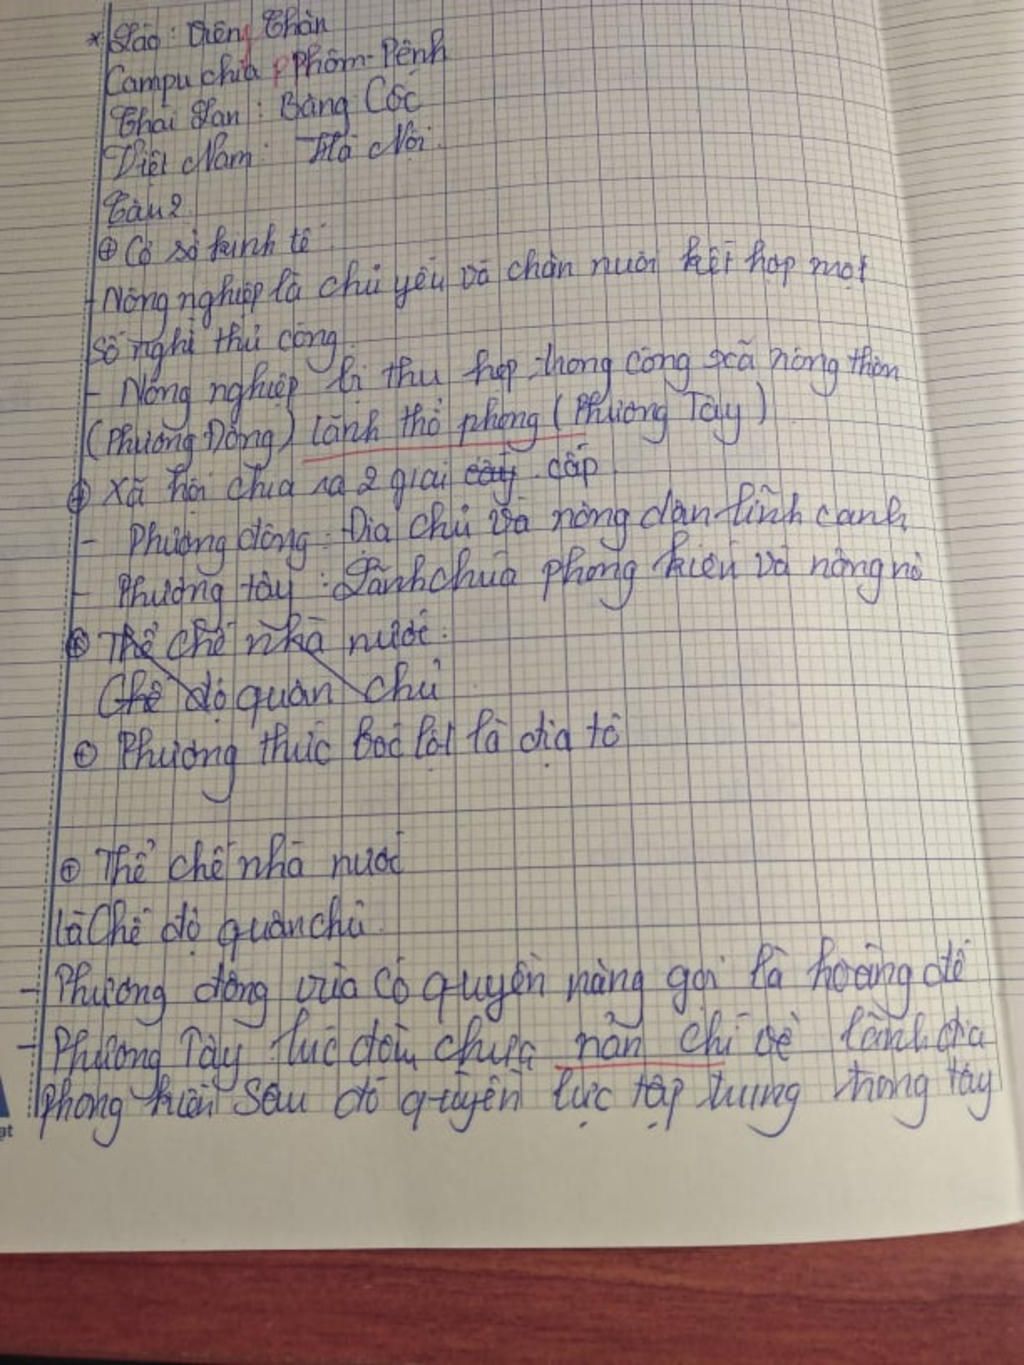 * Lào : Viêng Chăn
Campuchia Phôm-Pênh
Thai Lan : Băng Cốc
Việt Nam : Hà Nội
Câu 2
+ Cơ sở kinh tế
- Nông nghiệp là chủ yếu và chăn nuôi kết hợp một
số nghề thủ công
- Nông nghiệp bị thu hẹp trong công xã nông thôn
(Phương Đông) lãnh thổ phong (Phương Tây)
+ Xã hội chia ra 2 giai cấp cấp
- Phương đông : Địa chủ và nông dân lĩnh canh
- Phương tây : Lãnh chúa phong kiến và nông nô
+ Thể chế nhà nước :
Chế độ quân chủ
+ Phương thức bóc lột là địa tô
+ Thể chế nhà nước
là Chế độ quân chủ
- Phương đông vua có quyền năng gọi là hoàng đế
- Phương Tây lúc đầu chưa nản chí để lãnh địa
phong kiến sau đó quyền lực tập trung trong tay